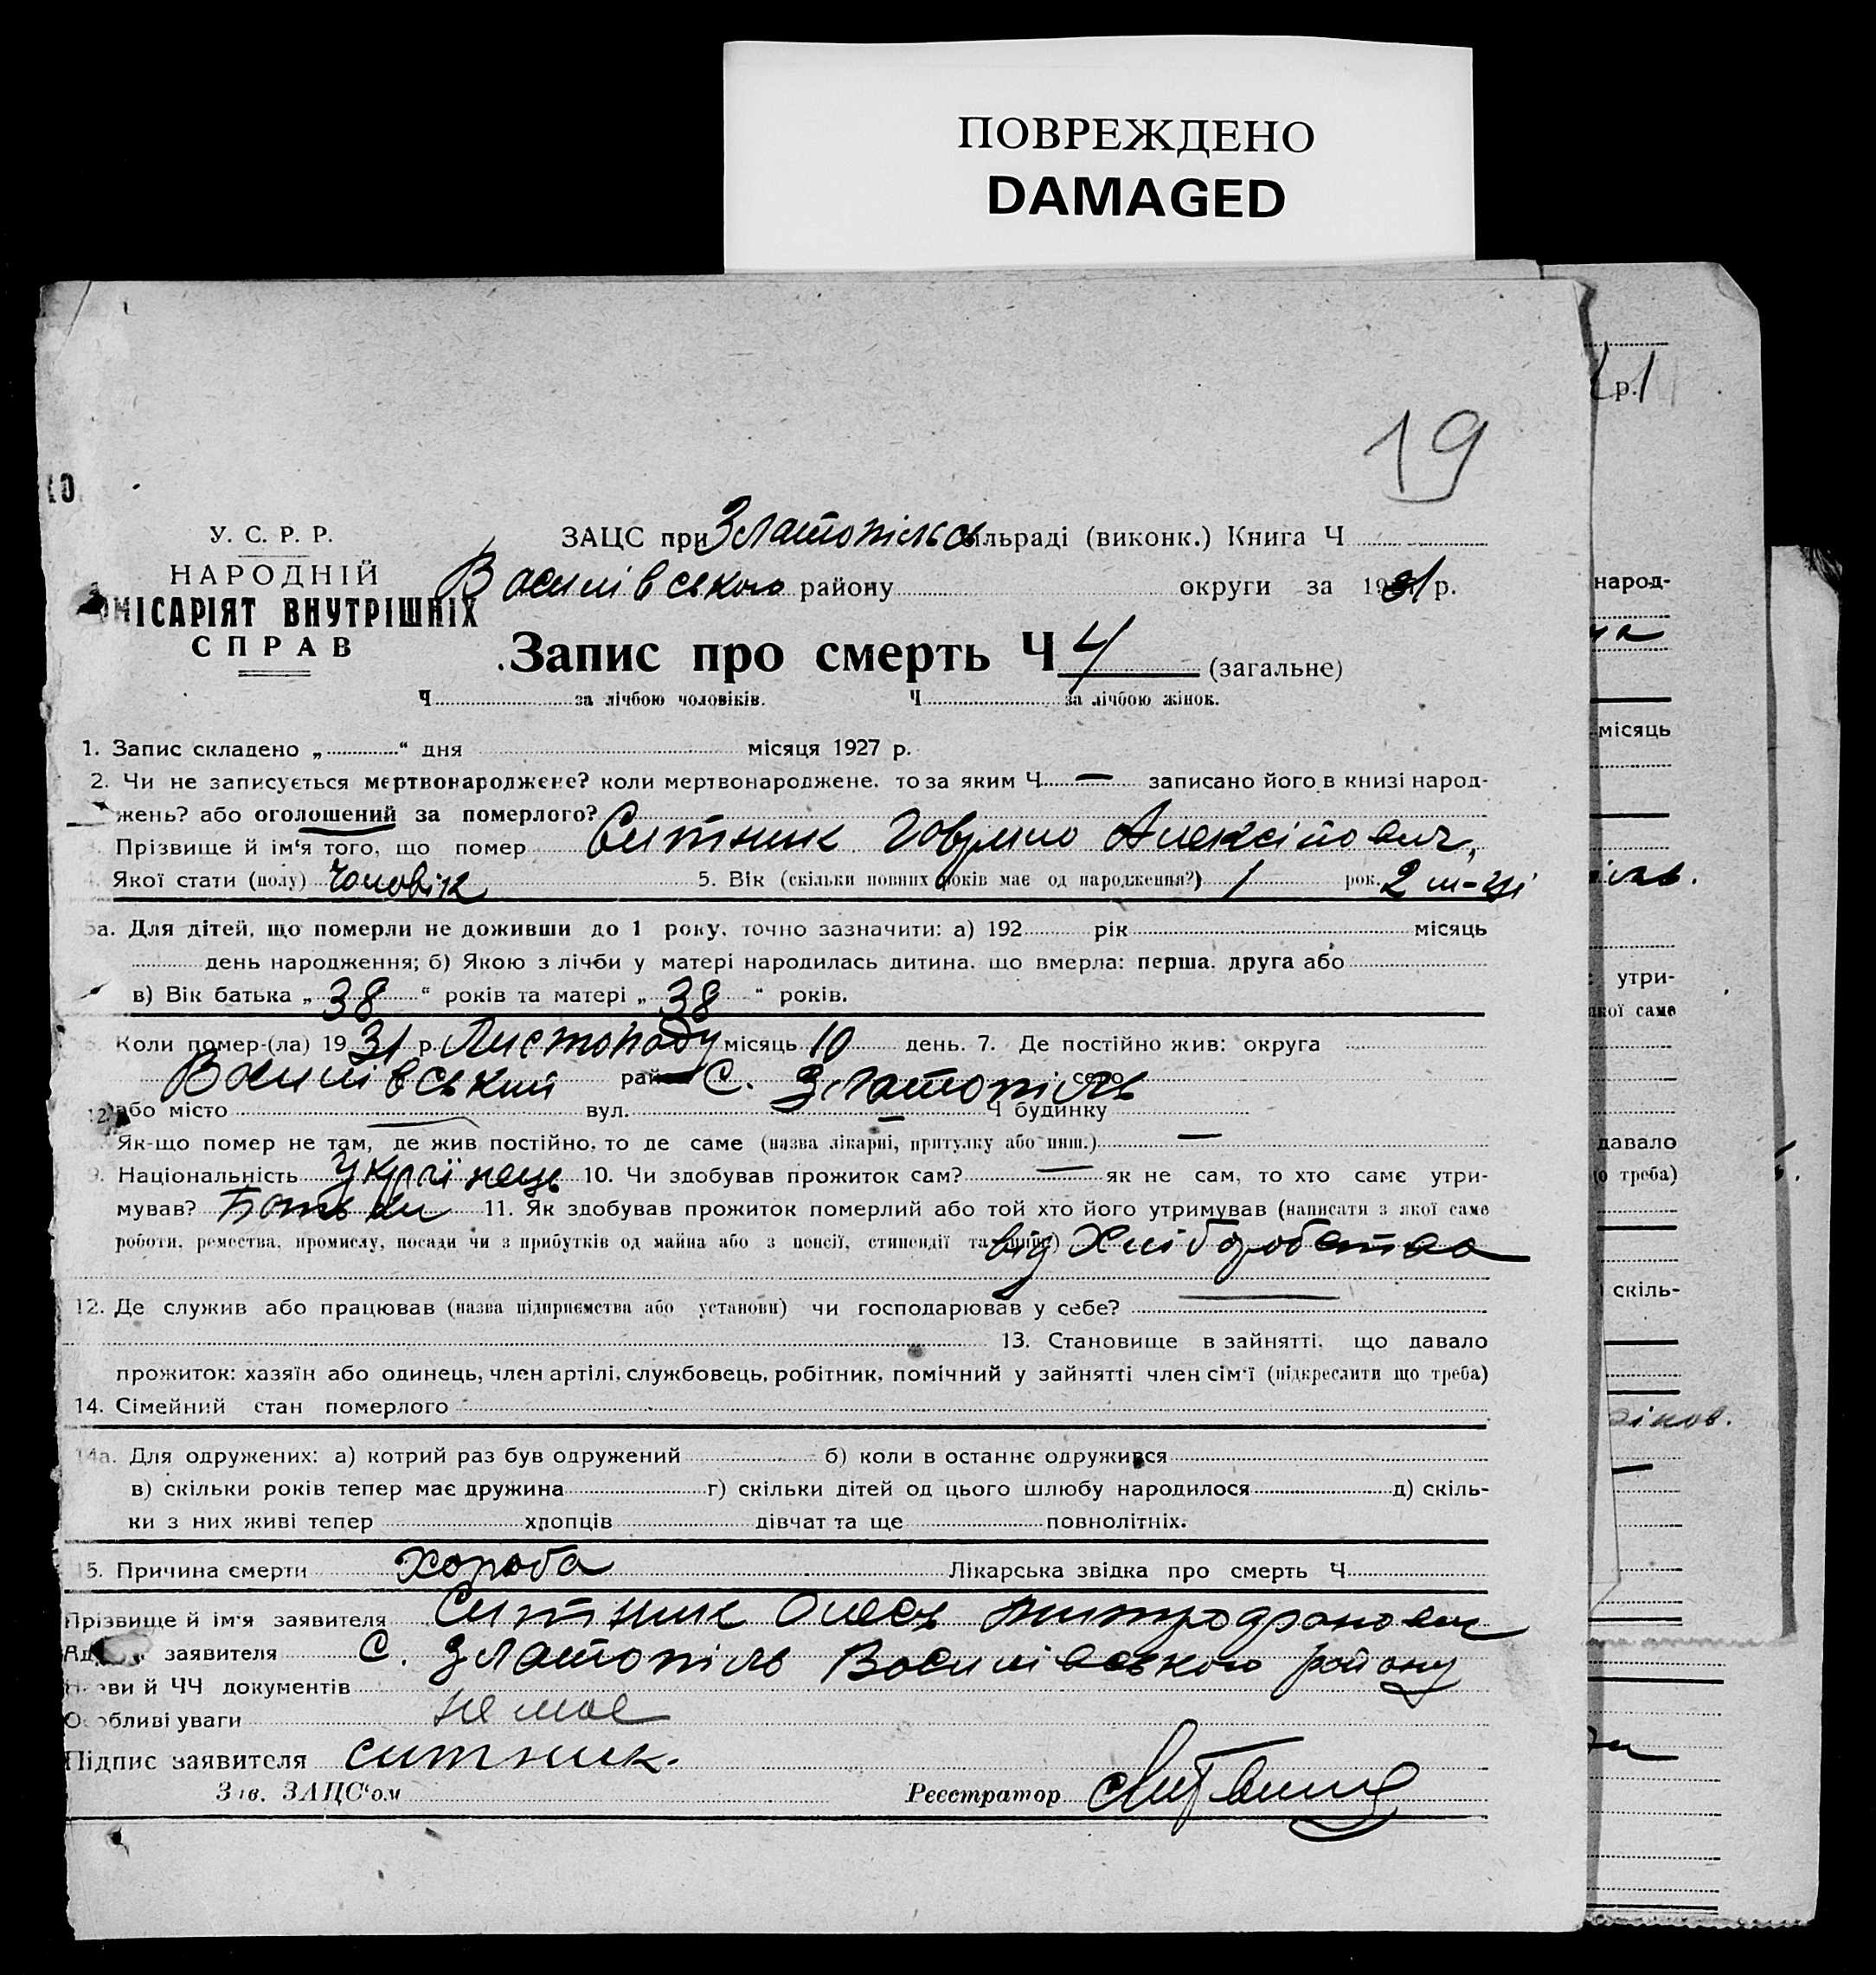 ПОВРЕЖДЕНО
DAMAGED
19
У. С. Р. Р.
НАРОДНІЙ
КОМІСАРІЯТ ВНУТРІШНІХ
СПРАВ
ЗАЦС при Златопільськ сільраді (виконк.) Книга Ч
Василівського району округи за 1931 р.
Запис про смерть Ч 4 (загальне)
Ч за лічбою чоловіків. Ч за лічбою жінок.
1. Запис складено „ “ дня місяця 1927 р.
2. Чи не записується мертвонароджене? коли мертвонароджене, то за яким Ч — записано його в книзі народ-
жень? або оголошений за померлого?
Прізвище й ім‘я того, що помер Ситник Алексійович,
Якої стати (полу) Чоловік 5. Вік (скільки повних років має од народження?) 1 рок. 2 м-ці
5а. Для дітей, що померли не доживши до 1 року, точно зазначити: а) 192 рік місяць
день народження; б) Якою з лічби у матері народилась дитина, що вмерла: перша, друга або
в) Вік батька „ 38 “ років та матері „ 38 “ років.
Коли помер-(ла) 1931 р. Листопаду місяць 10 день. 7. Де постійно жив: округа
Василівський район С. Златопіль село
або місто вул. — Ч будинку
Як-що помер не там, де жив постійно, то де саме (назва лікарні, притулку або инш.) —
9. Національність Українець 10. Чи здобував прожиток сам? — як не сам, то хто саме утри-
мував? Батьки 11. Як здобував прожиток померлий або той хто його утримував (написати з якої саме
роботи, ремества, промислу, посади чи з прибутків од майна або з пенсії, стипендії та инше) від Хліборобства
12. Де служив або працював (назва підприємства або установи) чи господарював у себе? —
13. Становище в зайнятті, що давало
прожиток: хазяїн або одинець, член артілі, службовець, робітник, помічний у зайнятті член сім‘ї (підкреслити що треба)
14. Сімейний стан померлого
14а. Для одружених: а) котрий раз був одружений б) коли в останнє одружився
в) скільки років тепер має дружина г) скільки дітей од цього шлюбу народилося д) скіль-
ки з них живі тепер хлопців дівчат та ще повнолітніх.
15. Причина смерти хороба Лікарська звідка про смерть Ч
Прізвище й ім‘я заявителя Ситник Олесь Митрофанович
Адреса заявителя С. Златопіль Василівського району
Назви й ЧЧ документів
Особливі уваги немає
Підпис заявителя ситник.
Зав. ЗАЦС‘ом Реєстратор
р. 1
народ-
місяць
утри-
якої саме
давало
що треба)
скіль-